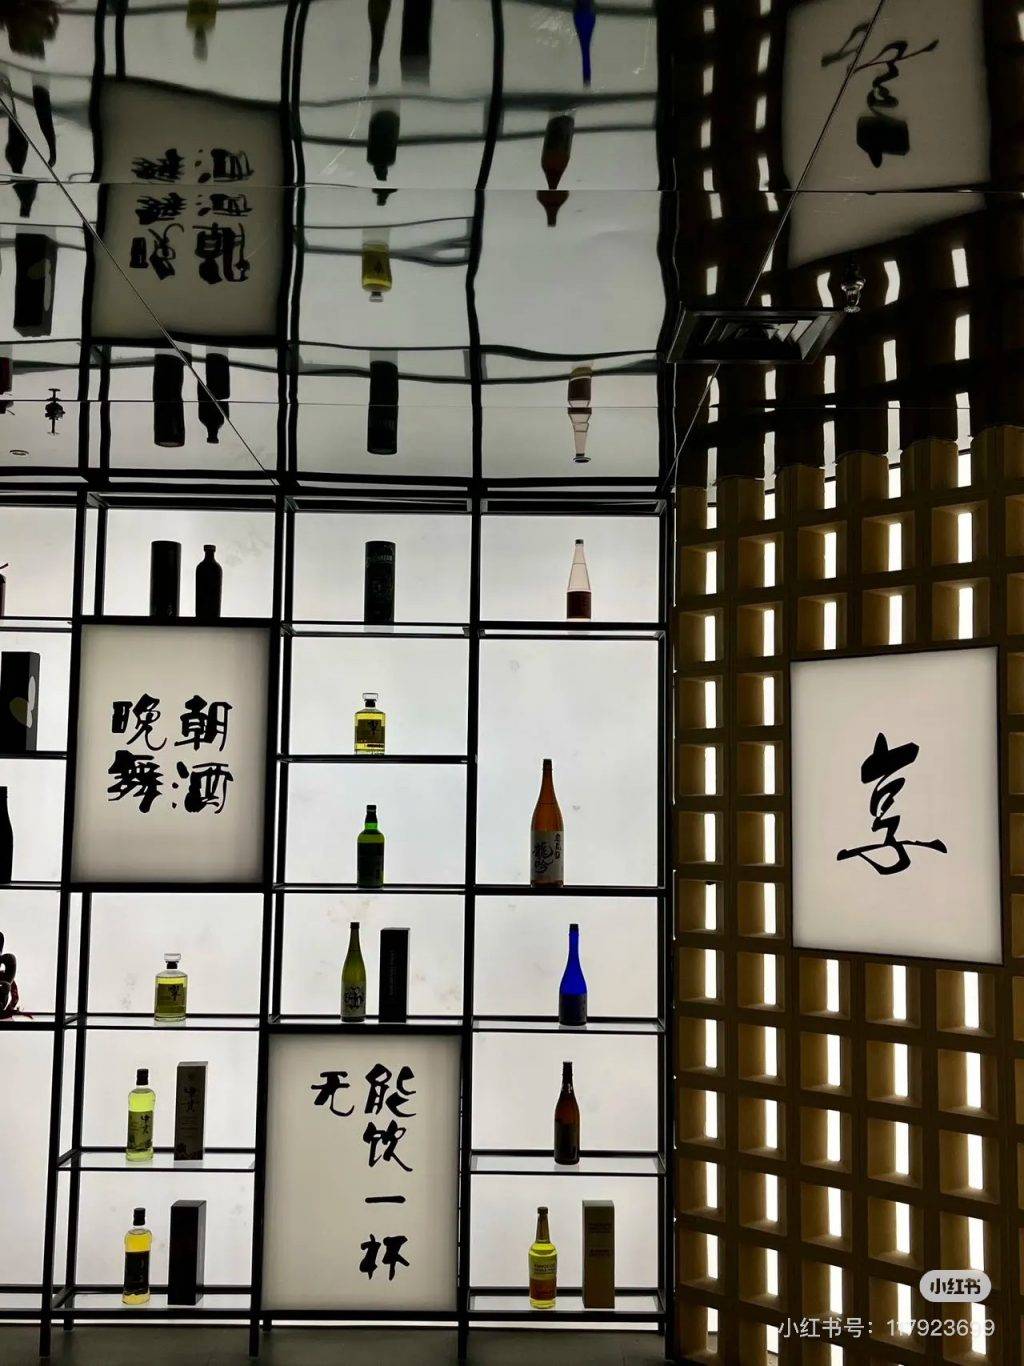 朝酒
晚舞
能饮一杯
无
享
龍吟
響
響
小红书
小红书号：117923699